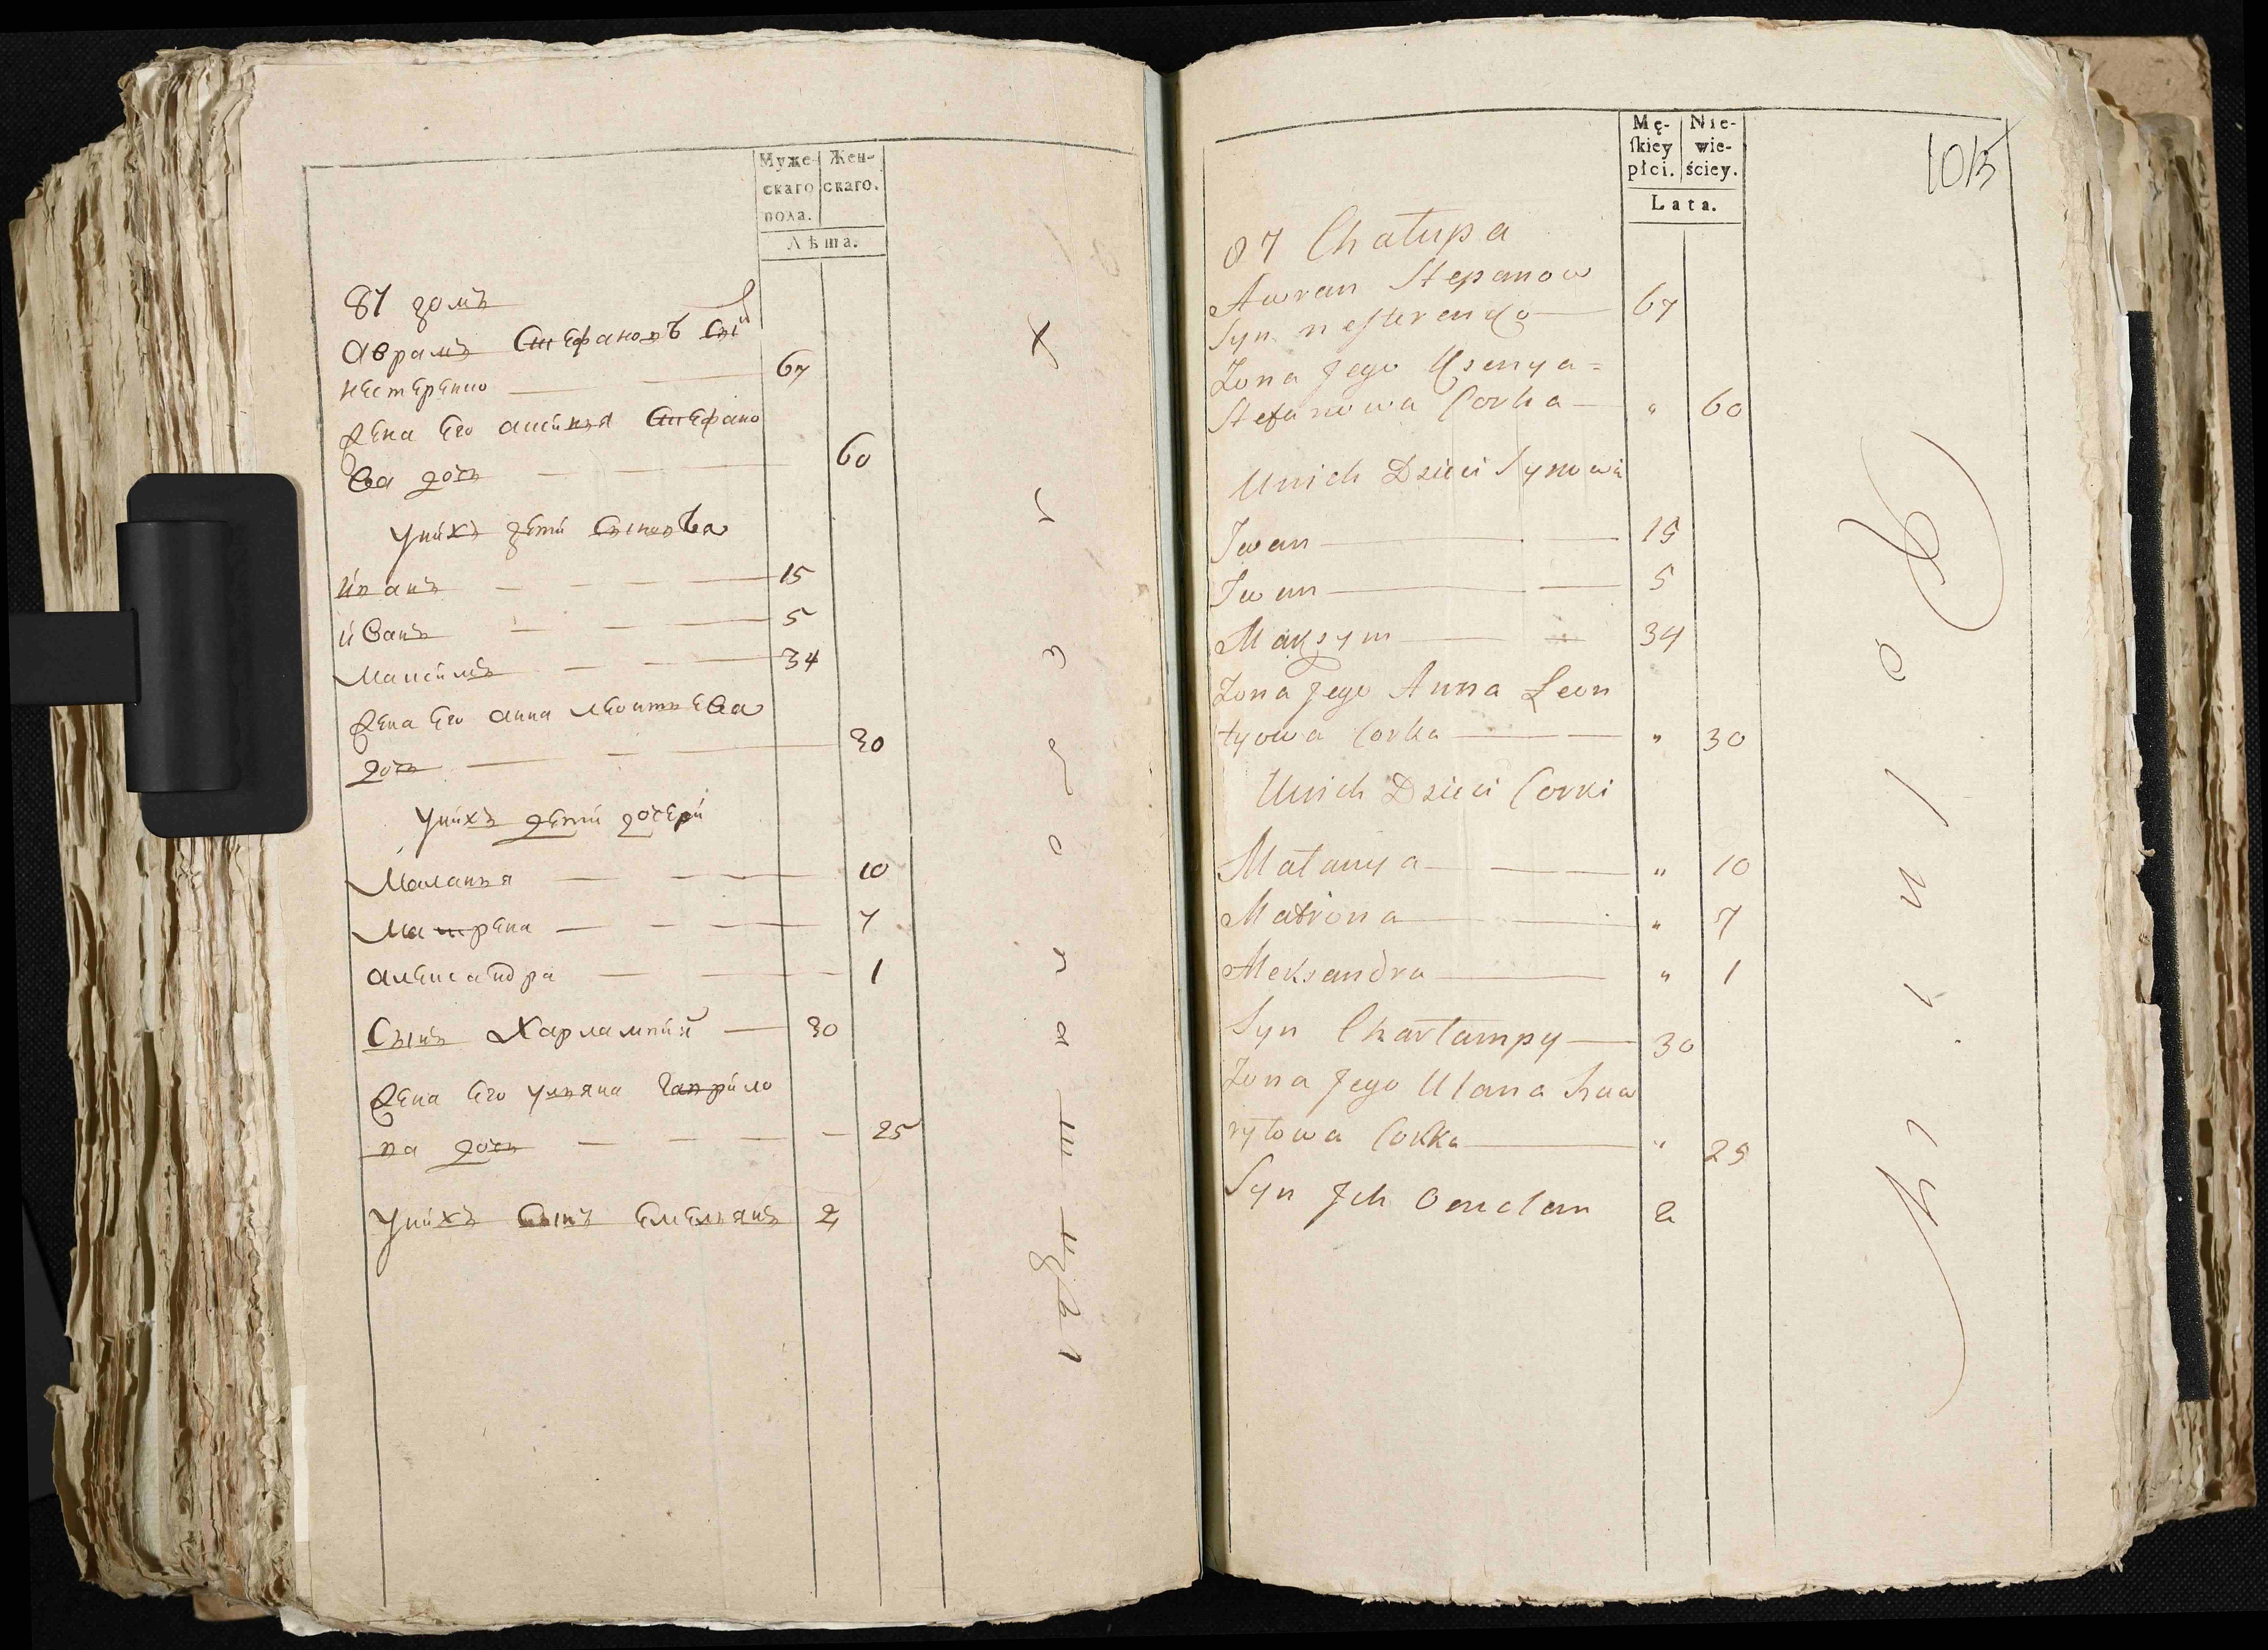 Муже-
скаго
пола.
Жен-
скаго.
Лѣта.
87 домъ
Аврамъ Стефановъ Снъ
нестеренко 67
Жена Его аксинья Стефано
ва дочь 60
Унихъ дети Сыновья
иванъ 15
иванъ 5
Максимъ 34
Жена Его анна леонтьева
дочь 30
Унихъ дети дочери
Маланья 10
Матрена 7
александра 1
Сынъ Харлампий 30
Жена Его ульяна гаврило
ва дочь 25
Унихъ Сынъ Емельянъ 2
Mę-
ſkiey
płci.
Nie-
wie-
ściey.
Lata.
1015
87 Chałupa
Awram Stepanow
Syn nesterenko 67
Zona Jego Xsenya =
Stefanowa Corka " 60
Unich Dzieci Synowie
Iwan 15
Iwan 5
Maksym 34
Zona Jego Anna Leon
tyowa Corka " 30
Unich Dzieci Corki
Małanya " 10
Matrona " 7
Aleksandra " 1
Syn Charłampy 30
Zona Jego Ulana haw
ryłowa Corka " 25
Syn Ich Omelan 2